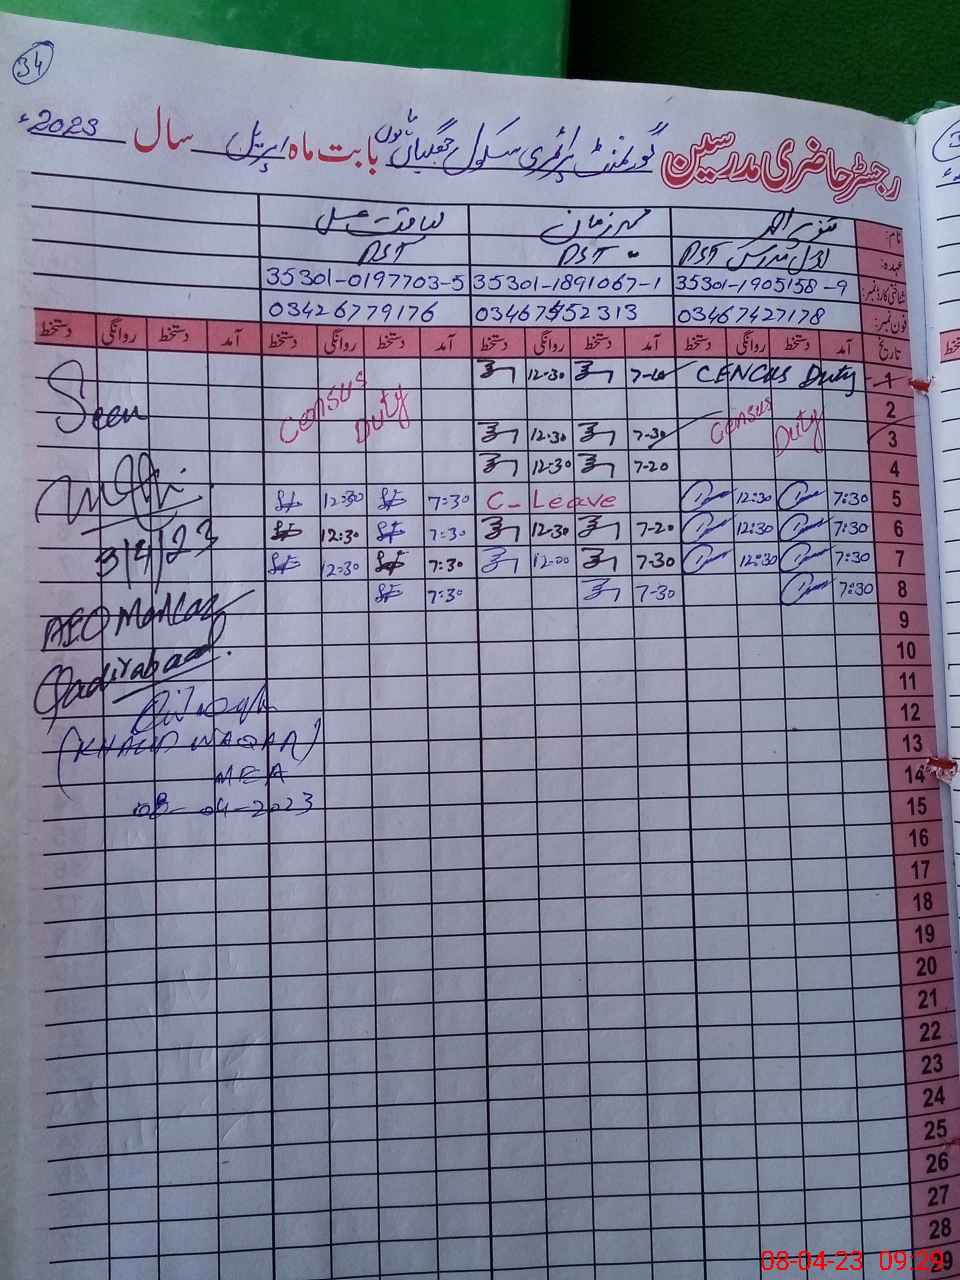 34
رجسٹر حاضری مدرسین گورنمنٹ پرائمری سکول بابت ماہ اپریل سال 2023ء
نام: تنویر احمد
عہدہ: PST PST PST
شناختی کارڈ نمبر: 35301-1905158-9 35301-1891067-1 35301-0197703-5
فون نمبر: 03467427178 03426779176
تاریخ آمد دستخط روانگی دستخط آمد دستخط روانگی دستخط آمد دستخط روانگی دستخط آمد دستخط روانگی دستخط
1 CENCUS Duty 12:30
2 Census Duty Census Duty
3 7-30 12-30
4 7-20 12-30
5 7:30 12:30 C-Leave 7:30 12:30
6 7:30 12:30 7-20 12-30 7:30 12:30
7 7:30 12:30 7-30 7:30 12:30
8 7:30 7-30 7:30
9
10
11
12
13
14
15
16
17
18
19
20
21
22
23
24
25
26
27
28
29
Seen
3/4/23
AEO Markaz
Qadirabad.
(KHALID WAQAR)
MEA
08-04-2023
08-04-23 09:29